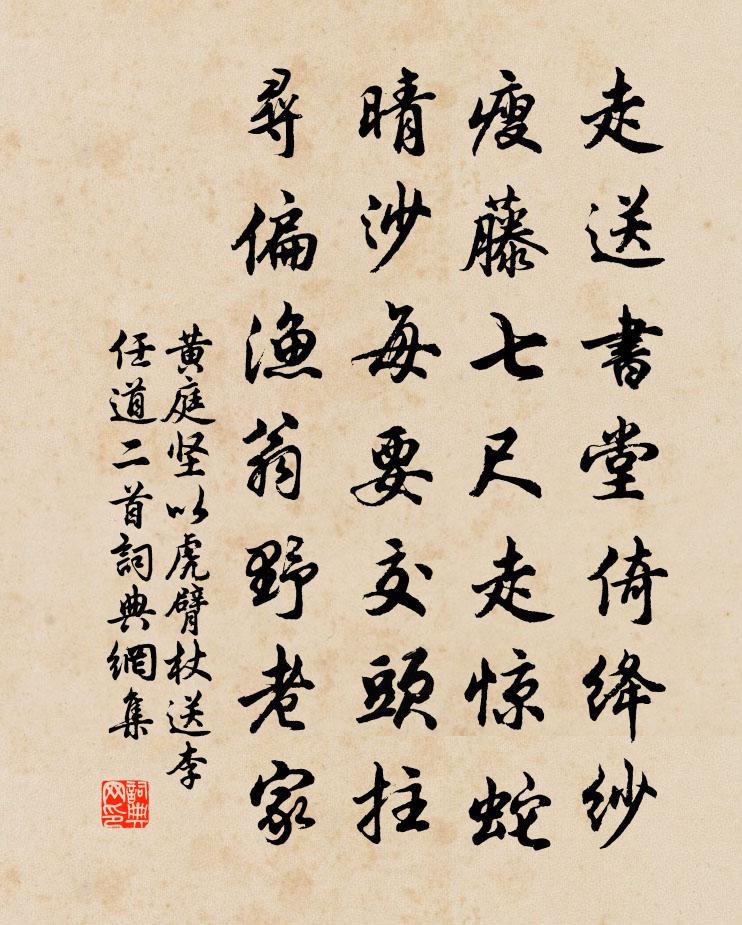 走送書堂倚绛紗
瘦藤七尺走惊蛇
晴沙每要交頭拄
尋偏漁翁野老家
黄庭坚以虎臂杖送李
任道二首詞典網集
詞典網印